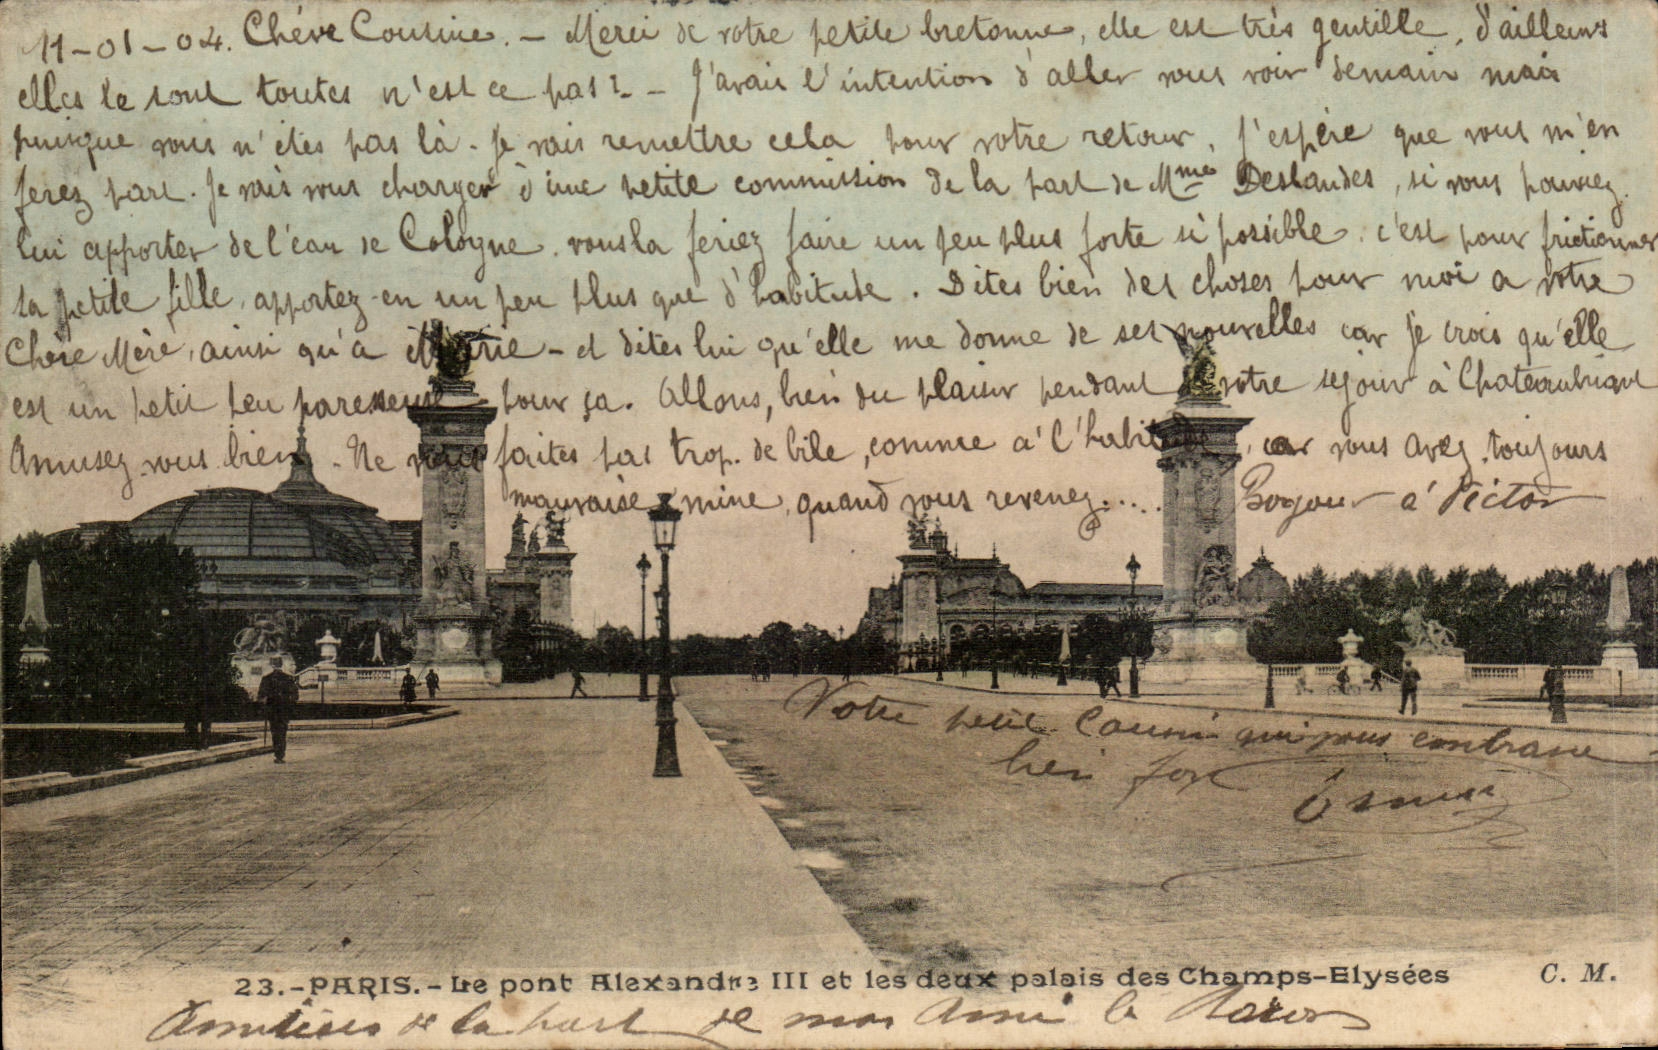 11-01-04. Chère Cousine. - Merci de votre petite bretonne, elle est très gentille, d'ailleurs
elles le sont toutes n'est ce pas? - J'avais l'intention d'aller vous voir demain mais
puisque vous n'êtes pas là - Je vais remettre cela pour votre retour, j'espère que vous m'en
ferez part. Je vais vous charger d'une petite commission de la part de Mme Deslandes, si vous pouviez
lui apporter de l'eau de Cologne. vous la feriez faire un peu plus forte si possible. c'est pour frictionner
sa petite fille, apportez-en un peu plus que d'habitude. Dites bien des choses pour moi a votre
Chère Mère, ainsi qu'à Marie - et dites lui qu'elle me donne de ses nouvelles car je crois qu'elle
est un petit peu paresseuse pour ça. Allons, bien du plaisir pendant votre séjour à Chateaubriant
Amusez-vous bien. - Ne vous faites pas trop. de bile, comme à l'habitude, car vous avez toujours
mauvaise mine, quand vous revenez.... Bonjour à Victor
Votre petit Cousin qui vous embrasse
bien fort
23.-PARIS.-Le pont Alexandre III et les deux palais des Champs-Elysées C. M.
Amitiés de la part de mon Ami